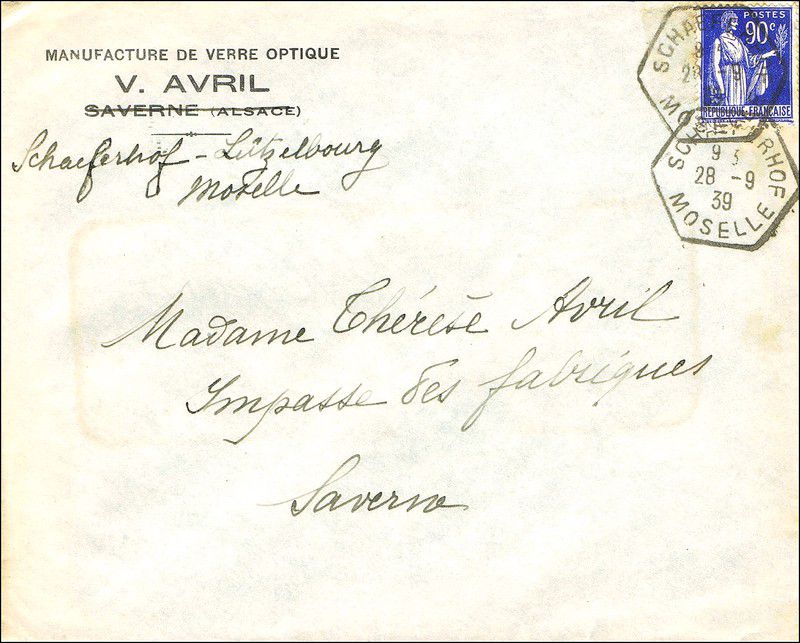 MANUFACTURE DE VERRE OPTIQUE
V. AVRIL
SAVERNE (ALSACE)
Schaeferhof - Lützelbourg
Moselle
POSTES
90c
REPUBLIQUE FRANÇAISE
28 -9
SCHAEFERHOF
9
28 -9
39
MOSELLE
Madame Thérèse Avril
Impasse des fabriques
Saverne